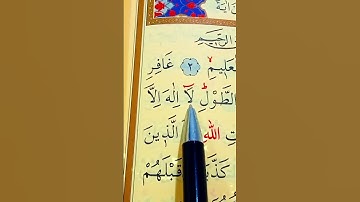 الرَّحِيمِ
الْعَلِيمِ ﴿٢﴾ غَافِرِ
الطَّوْلِ لَٓا اِلٰهَ اِلَّا
اللّٰهِ الَّذِينَ
قَبْلَهُمْ